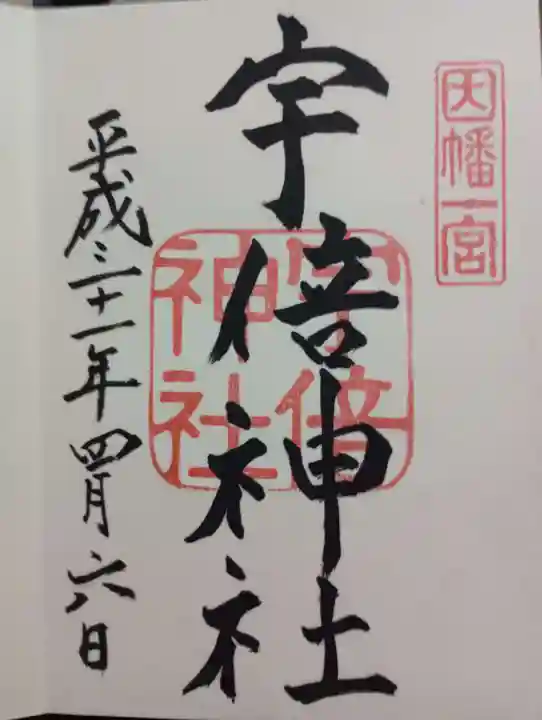 因幡一宮
宇倍神社
宇倍
神社
平成三十一年四月六日